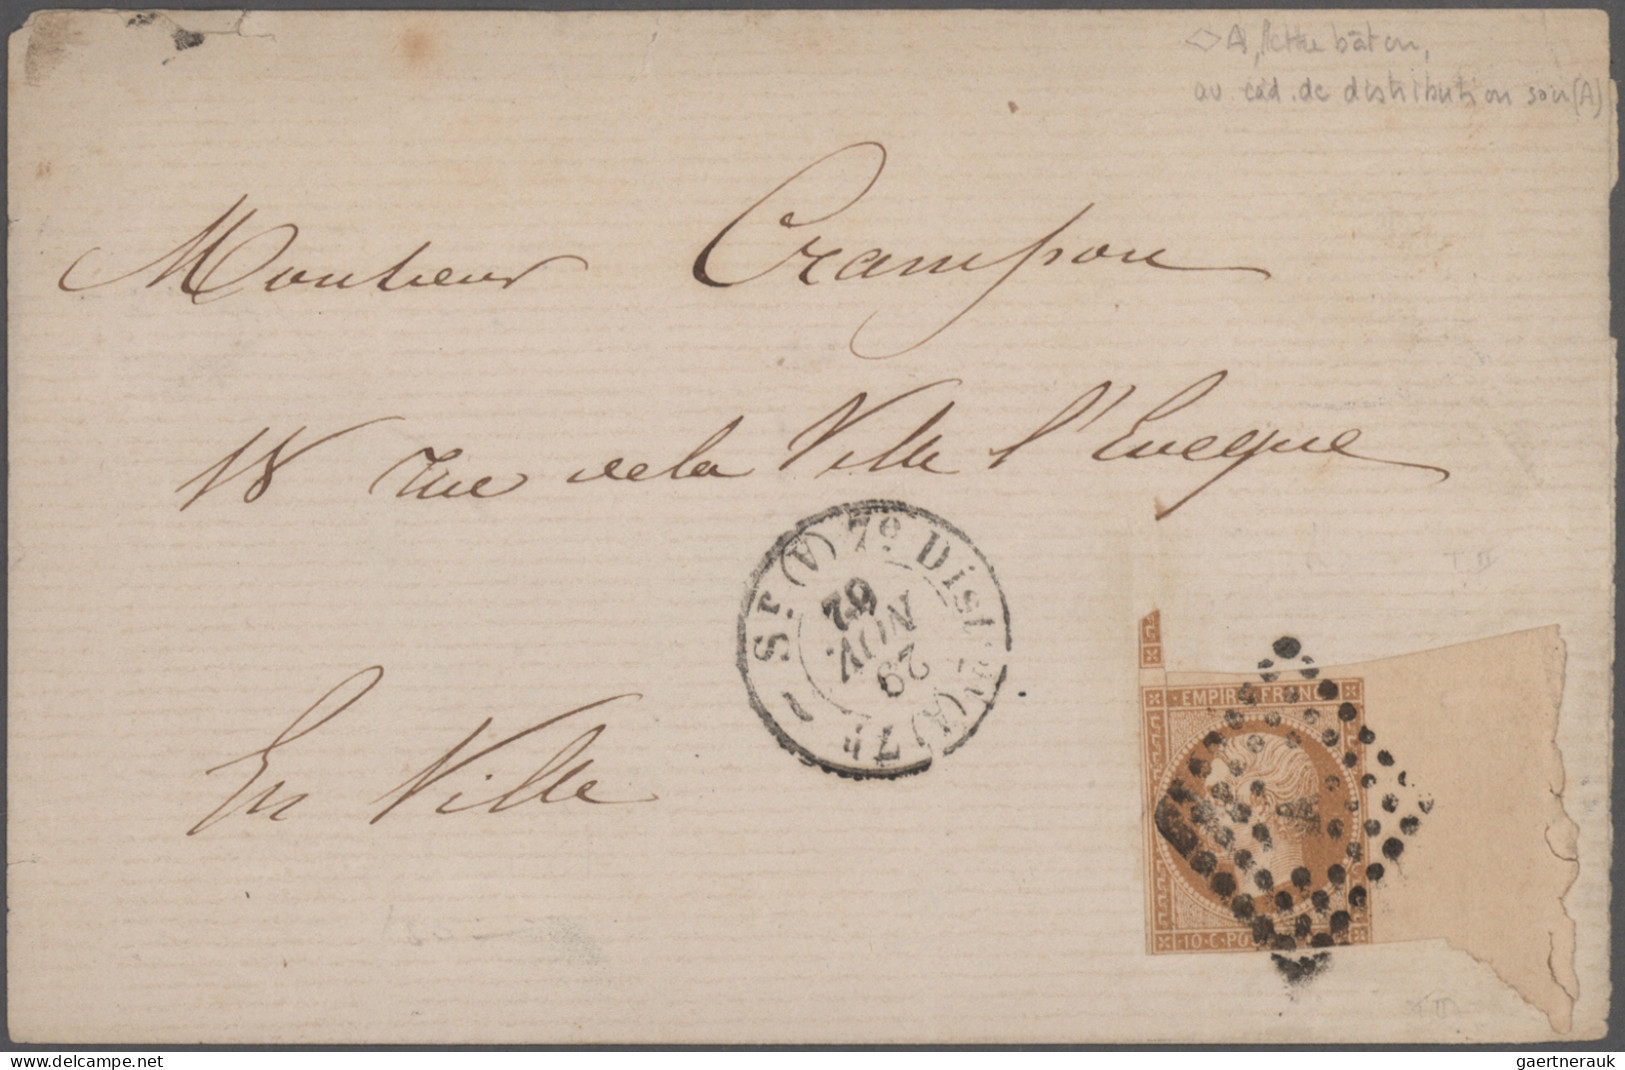 A, lettre bâton,
au càd. de distribution soir (A)
Monsieur Crampon
18 rue de la Ville l'Eveque
En Ville
7e Dist.on (A) 7h Sr. (A)
29
NOV.
62
EMPIRE FRANC
10 · C · PO
A
T II
T II
www.delcampe.net
gaertnerauk